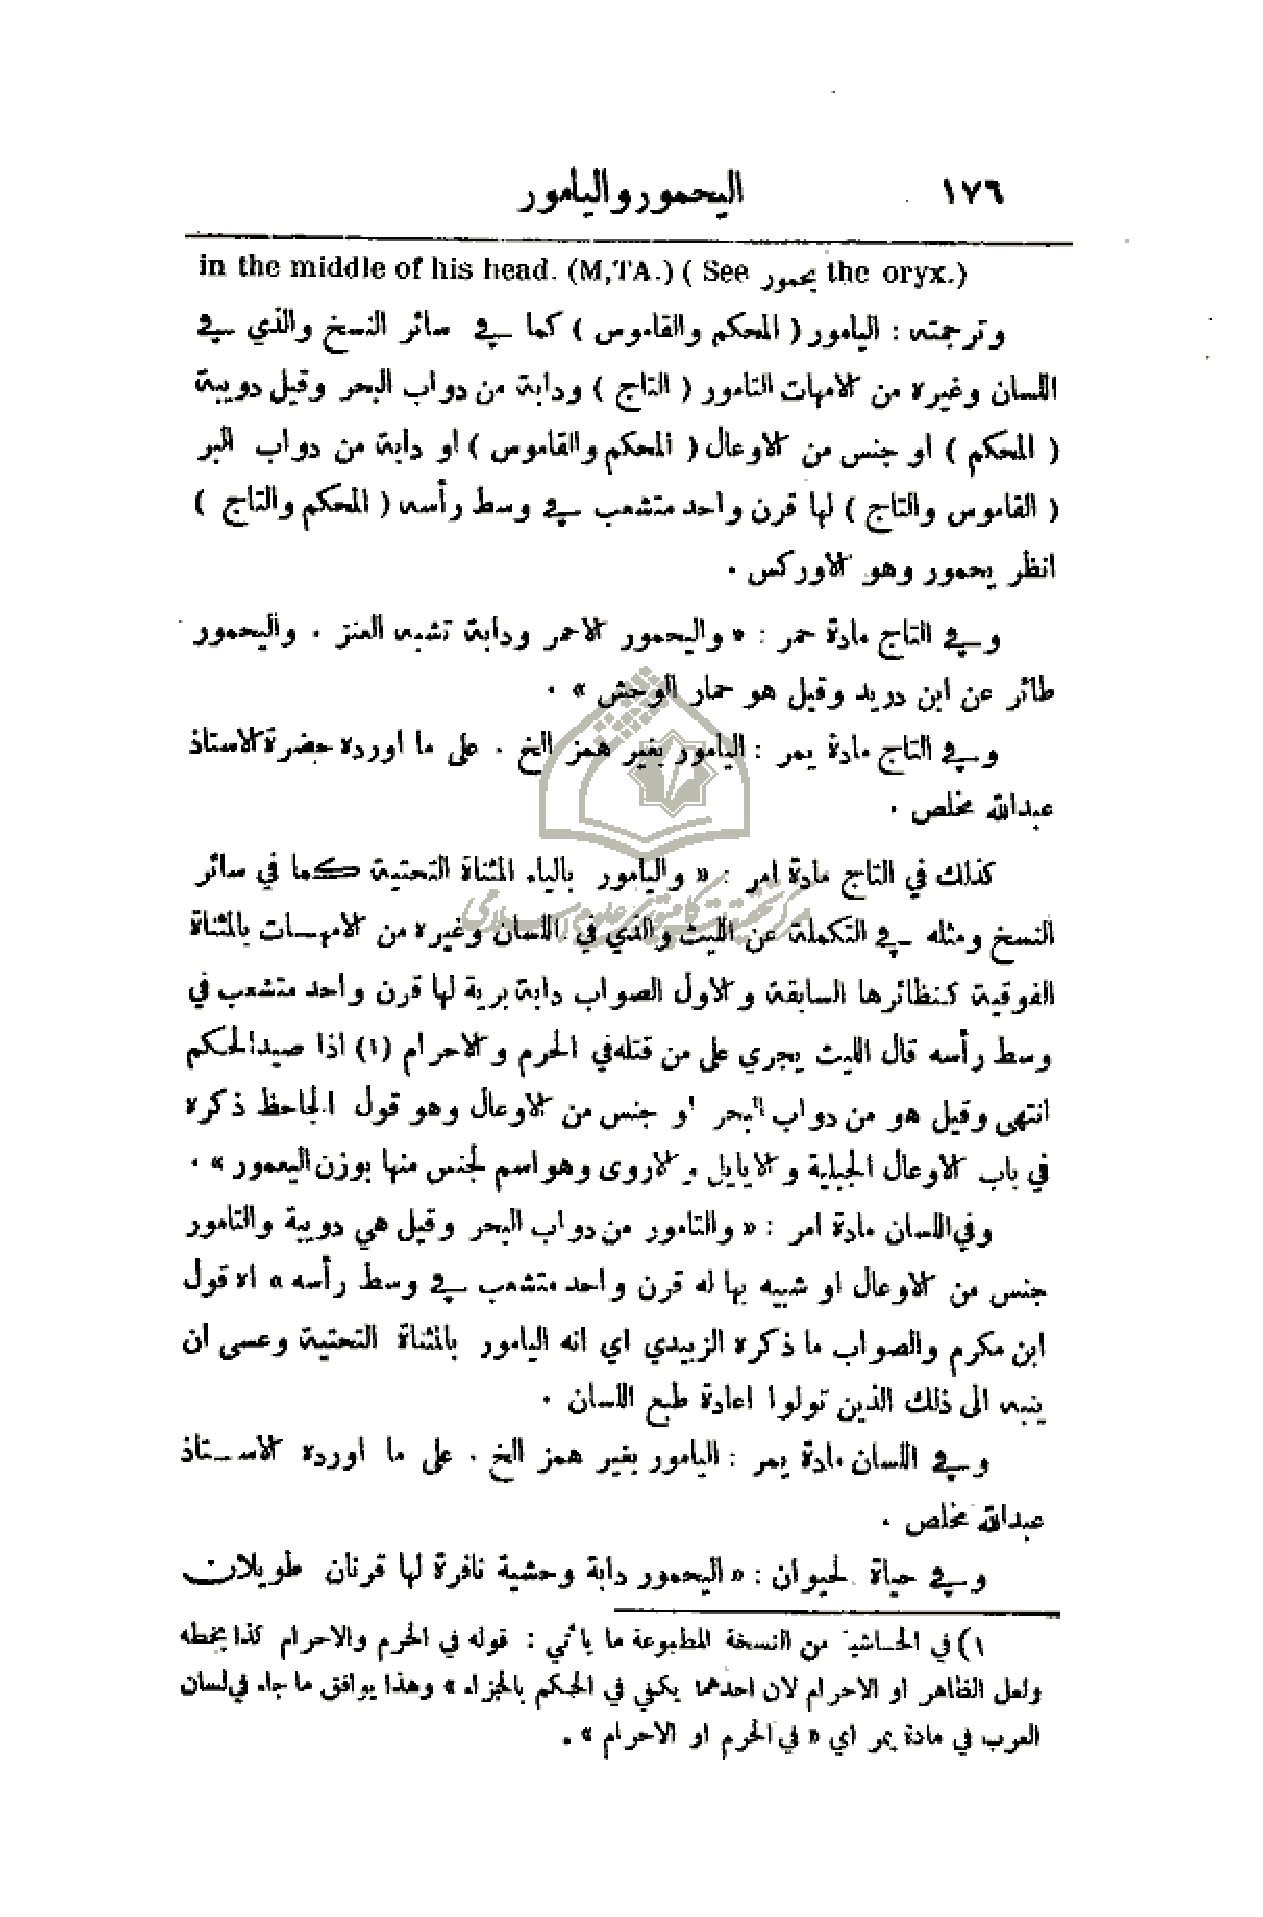 ١٧٦ اليحمور واليامور
in the middle of his head. (M,TA.) ( See يحمور the oryx.)
وترجمته : اليامور ( المحكم والقاموس ) كما في سائر النسخ والذي في
اللسان وغيره من الامهات التامور ( التاج ) ودابة من دواب البحر وقيل دويبة
( المحكم ) او جنس من الاوعال ( المحكم والقاموس ) او دابة من دواب البر
( القاموس والتاج ) لها قرن واحد متشعب في وسط رأسه ( المحكم والتاج )
انظر يحمور وهو الاوركس .
وفي التاج مادة حمر : « واليحمور الاحمر ودابة تشبه العنز . واليحمور
طائر عن ابن دريد وقيل هو حمار الوحش » .
وفي التاج مادة يمر : اليامور بغير همز الخ . على ما اورده حضرة الاستاذ
عبدالله مخلص .
كذلك في التاج مادة امر : « واليامور بالياء المثناة التحتية كما في سائر
النسخ ومثله في التكملة عن الليث والذي في اللسان وغيره من الامهات بالمثناة
الفوقية كنظائرها السابقة والاول الصواب دابة برية لها قرن واحد متشعب في
وسط رأسه قال الليث يجري على من قتله في الحرم والاحرام (١) اذا صيد الحكم
انتهى وقيل هو من دواب البحر او جنس من الاوعال وهو قول الجاحظ ذكره
في باب الاوعال الجبلية والايايل والاروى وهو اسم لجنس منها بوزن اليعمور » .
وفي اللسان مادة امر : « والتامور من دواب البحر وقيل هي دويبة والتامور
جنس من الاوعال او شبيه بها له قرن واحد متشعب في وسط رأسه » اه قول
ابن مكرم والصواب ما ذكره الزبيدي اي انه اليامور بالمثناة التحتية وعسى ان
ينبه الى ذلك الذين تولوا اعادة طبع اللسان .
وفي اللسان مادة يمر : اليامور بغير همز الخ . على ما اورده الاستاذ
عبدالله مخلص .
وفي حياة لحيوان : « اليحمور دابة وحشية نافرة لها قرنان طويلان
١) في الحاشية من النسخة المطبوعة ما يأتي : قوله في الحرم والاحرام كذا بخطه
ولعل الظاهر او الاحرام لان احدهما يكفي في الحكم بالجزاء » وهذا يوافق ما جاء في لسان
العرب في مادة يمر اي « في الحرم او الاحرام » .